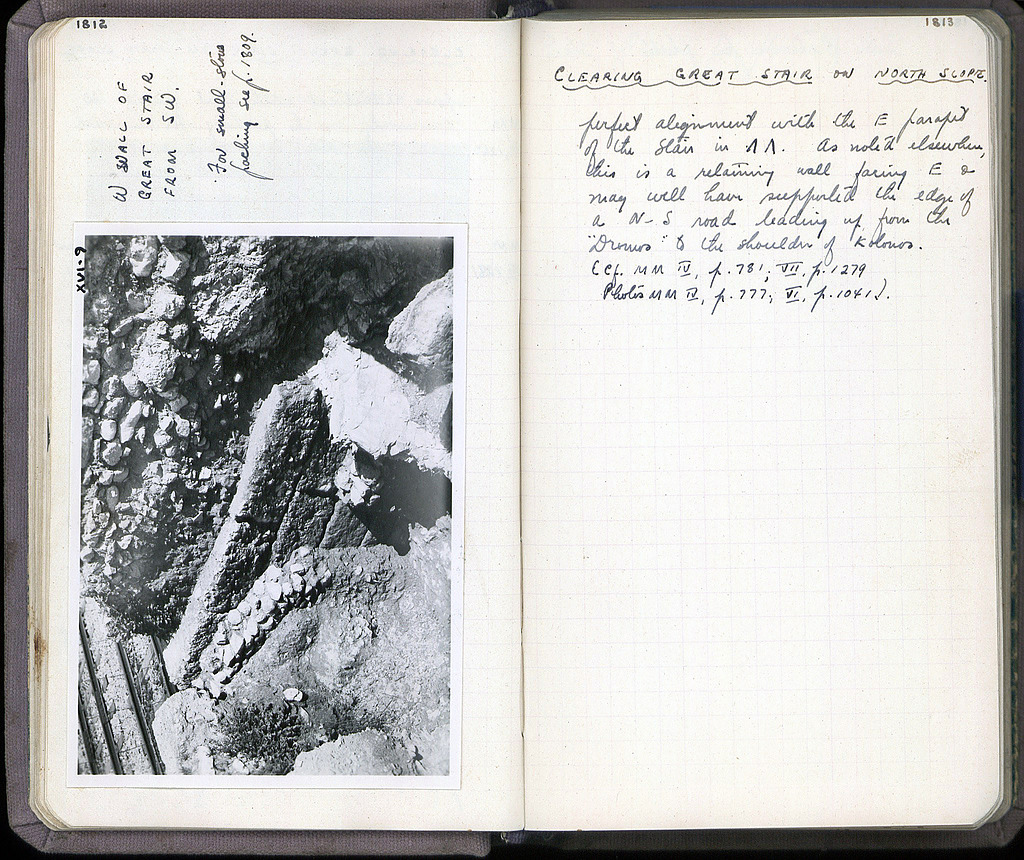 1812
W WALL OF
GREAT STAIR
FROM SW.
For small-stone
packing see p. 1809.
XVI-9
1813
CLEARING GREAT STAIR ON NORTH SLOPE.
perfect alignment with the E parapet
of the stair in ΛΛ. As noted elsewhere,
this is a retaining wall facing E &
may well have supported the edge of
a N-S road leading up from the
"Dromos" to the shoulder of Kolonos.
(cf. MM IV, p. 781; VII, p. 1279
Photos MM IV, p. 777; VI, p. 1041).